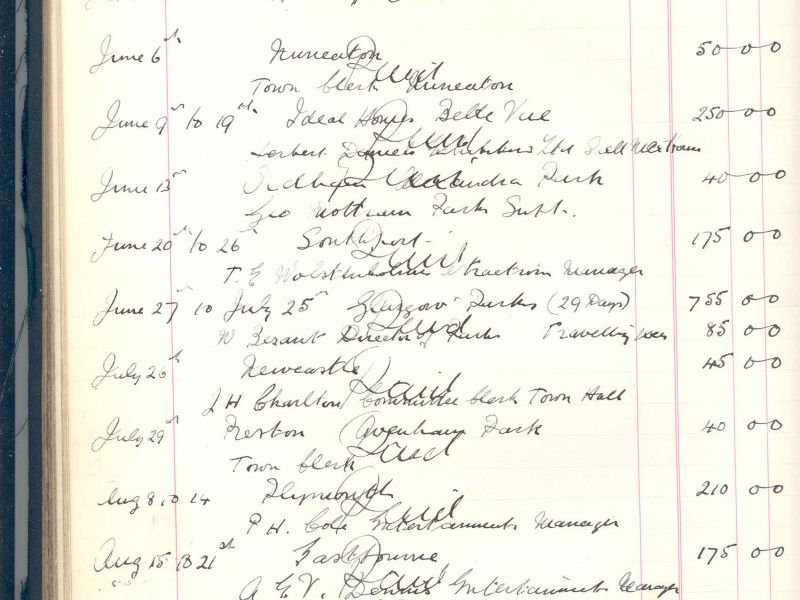 June 6th Nuneaton 50 - 0 - 0
Town Clerk Nuneaton
June 9th to 19th Ideal Homes Belle Vue 250 - 0 - 0
Herbert Daniels Ltd
June 13th Alexandra Park 40 - 0 0
Geo Mottram Parks Supt.
June 20th to 26th Southport - 175 0 0
T. E Wolstenholme Attractions Manager
June 27th to July 25th Glasgow Parks (29 Days) 755 0 0
W Bezant Director of Parks Travelling 85 0 0
July 26th Newcastle 45 0 0
J H Charlton Committee Clerk Town Hall
July 29th Preston Avenham Park 40 0 0
Town Clerk
Aug 8 to 14 Plymouth 210 0 0
P H. Cole Entertainments Manager
Aug 15 to 21st Eastbourne 175 0 0
A E V. Entertainments Manager